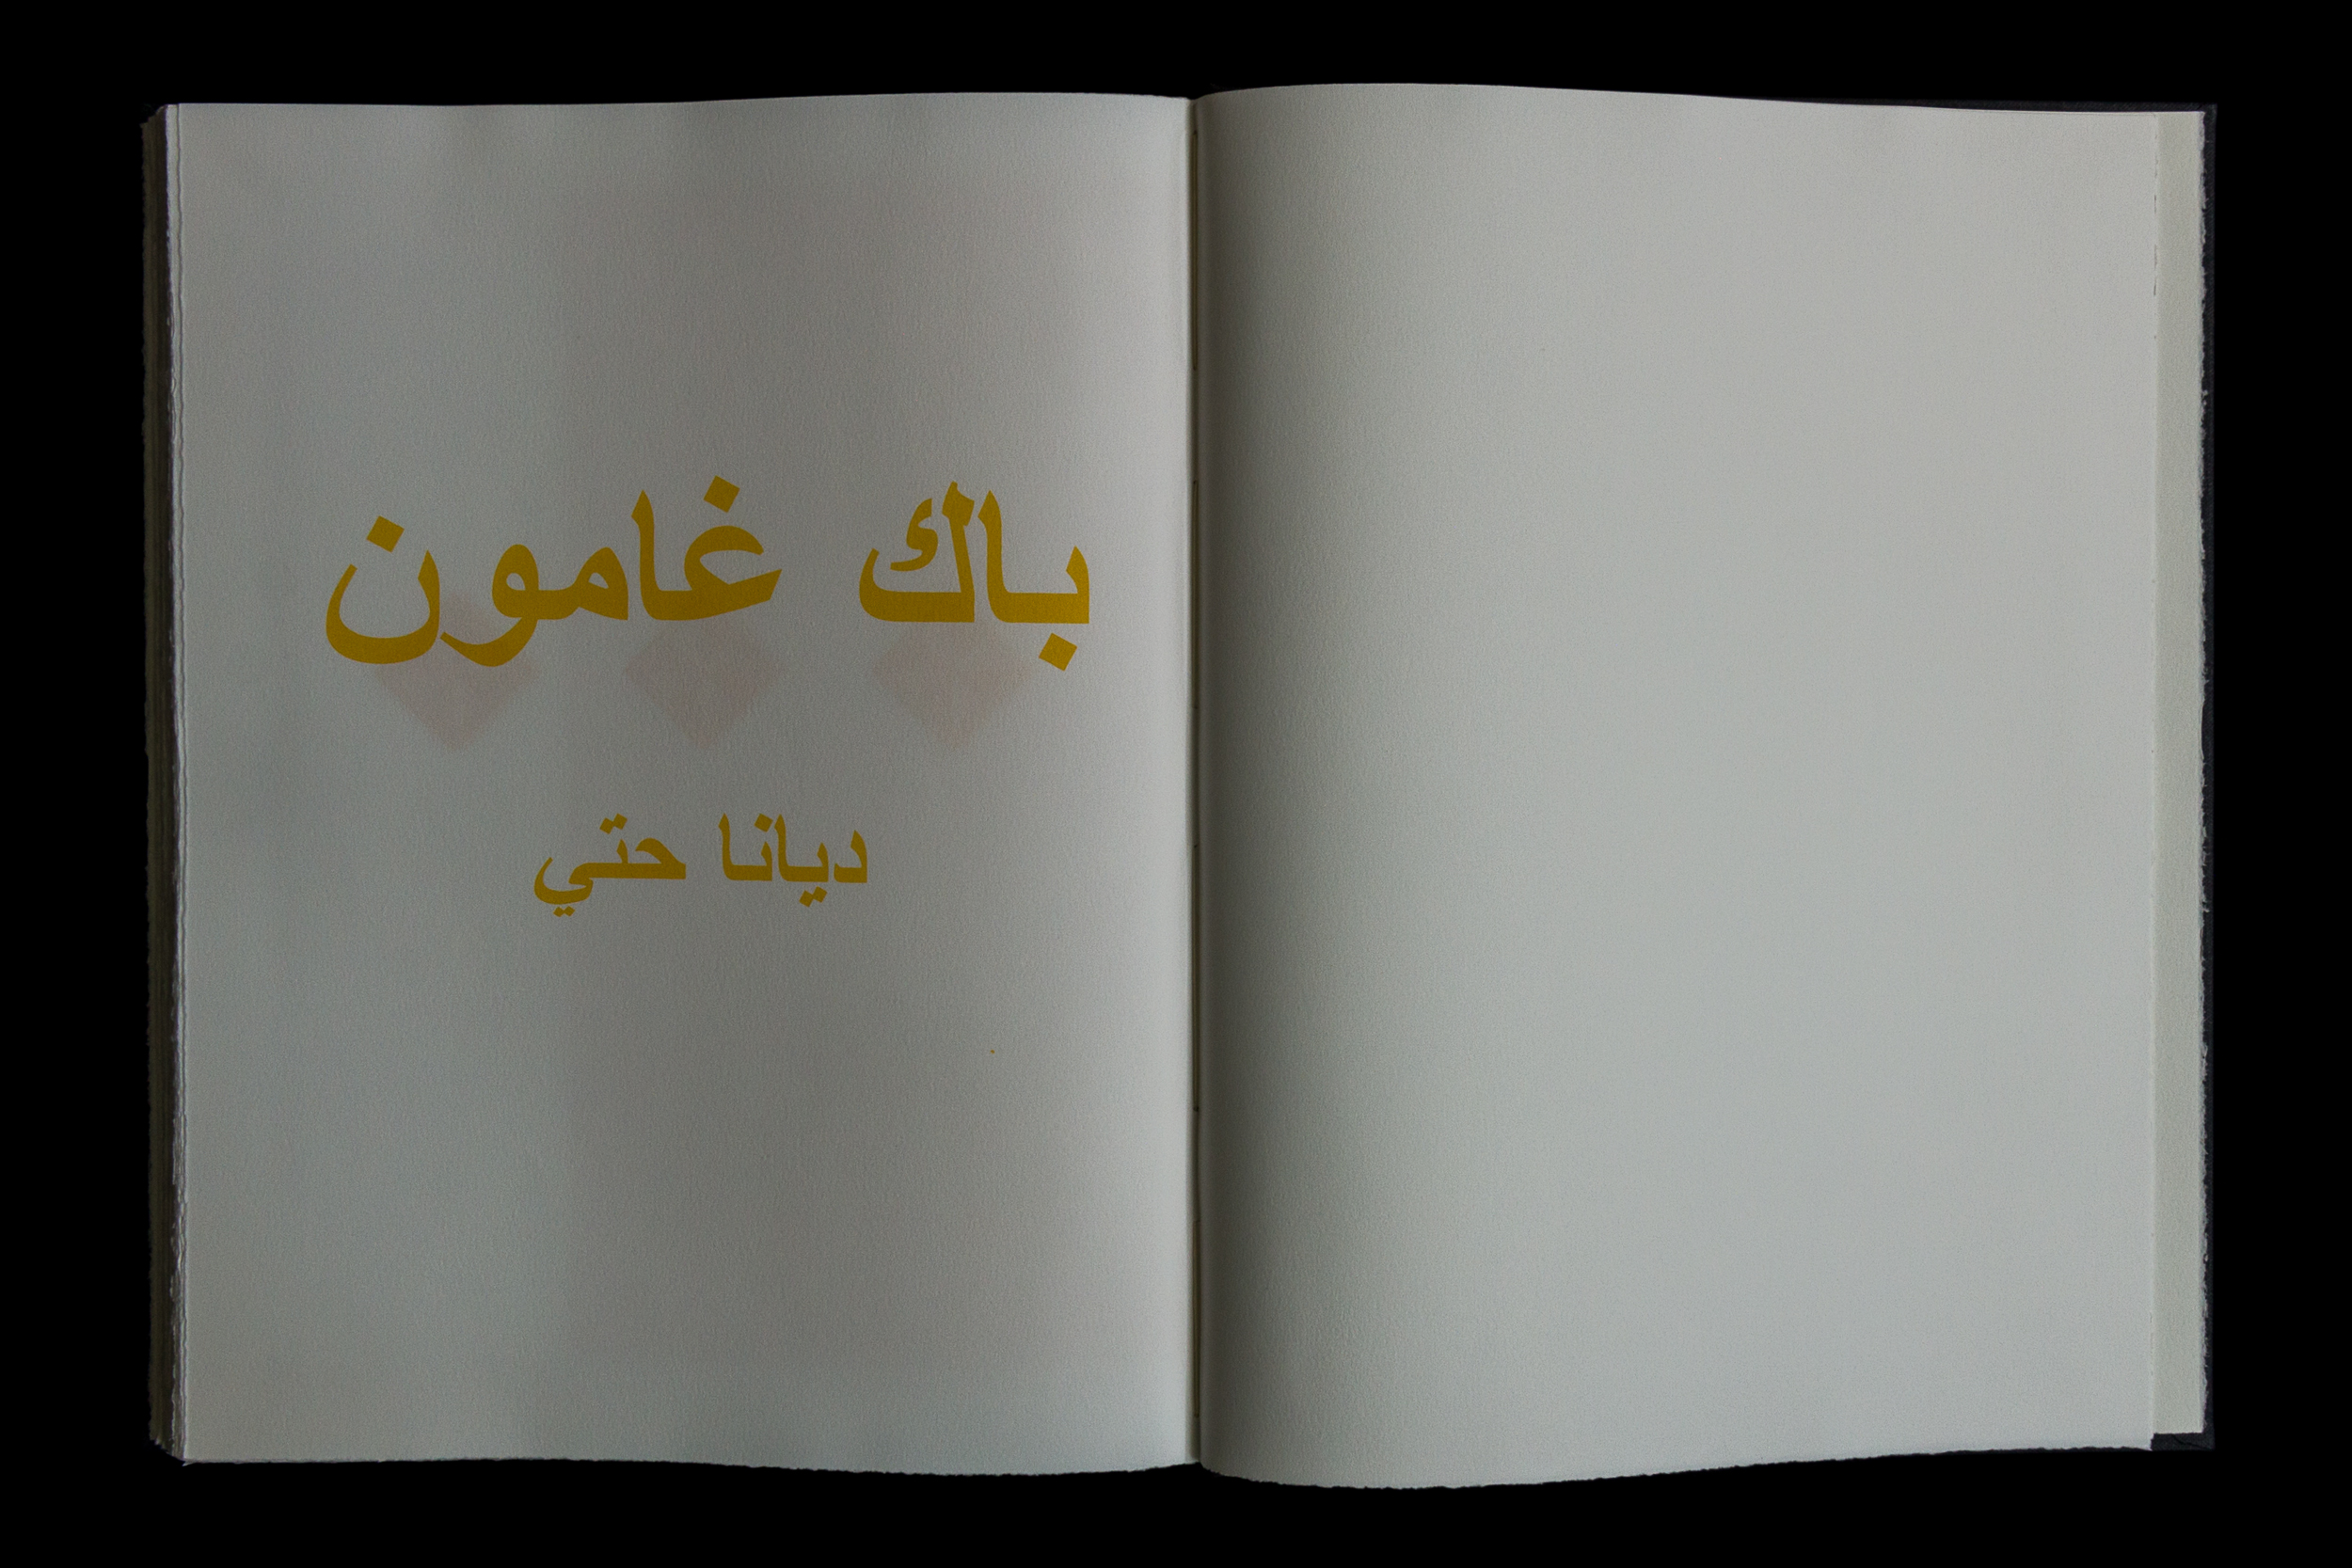 باك غامون
ديانا حتي